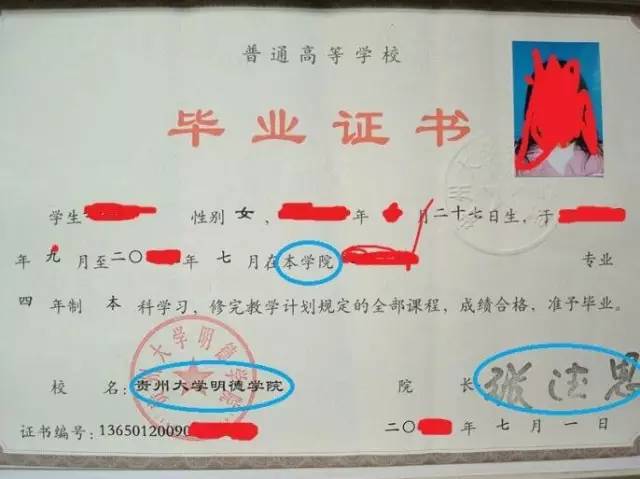 普通高等学校
毕业证书
学生 性别 女 , 年 月二十七日生，于
年 九 月至二〇 年 七 月在本学院 专业
四 年制 本 科学习，修完教学计划规定的全部课程，成绩合格，准予毕业。
校 名：贵州大学明德学院 院 长：
贵州大学明德学院
证书编号：13650120090 二〇 年 七 月 一 日